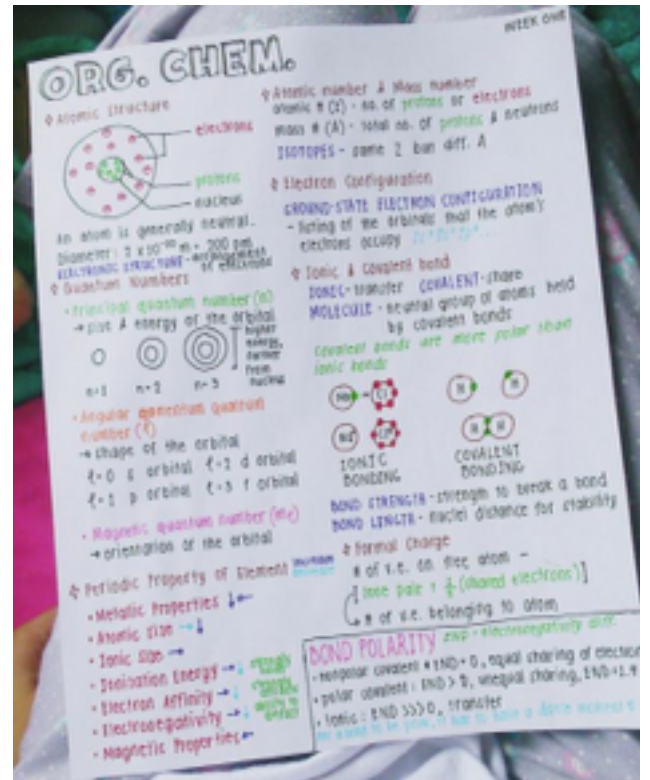 WEEK ONE
ORG. CHEM.
Atomic Structure
electrons
protons
nucleus
An atom is generally neutral.
Diameter: 2 x 10⁻¹⁰ m = 200 pm
ELECTRONIC STRUCTURE - arrangement
of electrons
Quantum Numbers
• Principal quantum number (n)
→ size & energy of the orbital
higher
energy,
farther
from
nucleus
n=1 n=2 n=3
• Angular momentum quantum
number (ℓ)
→ shape of the orbital
ℓ=0 s orbital ℓ=2 d orbital
ℓ=1 p orbital ℓ=3 f orbital
• Magnetic quantum number (mℓ)
→ orientation of the orbital
Periodic Property of Element
• Metallic Properties ↓←
• Atomic Size ↓
• Ionic Size
• Ionization Energy
• Electron Affinity
• Electronegativity
• Magnetic Properties
Atomic number & Mass number
atomic # (Z) - no. of protons or electrons
mass # (A) - total no. of protons & neutrons
ISOTOPES - same Z but diff. A
Electron Configuration
GROUND-STATE ELECTRON CONFIGURATION
- listing of the orbitals that the atom's
electrons occupy
Ionic & Covalent bond
IONIC - transfer COVALENT - share
MOLECULE - neutral group of atoms held
by covalent bonds
covalent bonds are more polar than
ionic bonds
Na Cl H H
H H
IONIC
BONDING
COVALENT
BONDING
BOND STRENGTH - strength to break a bond
BOND LENGTH - nuclei distance for stability
Formal Charge
# of v.e. on free atom -
[lone pair + ½ (shared electrons)]
# of v.e. belonging to atom
BOND POLARITY END - electronegativity diff.
• nonpolar covalent: END = 0, equal sharing of electron
• polar covalent: END > 0, unequal sharing,
• ionic: END >>> 0, transfer